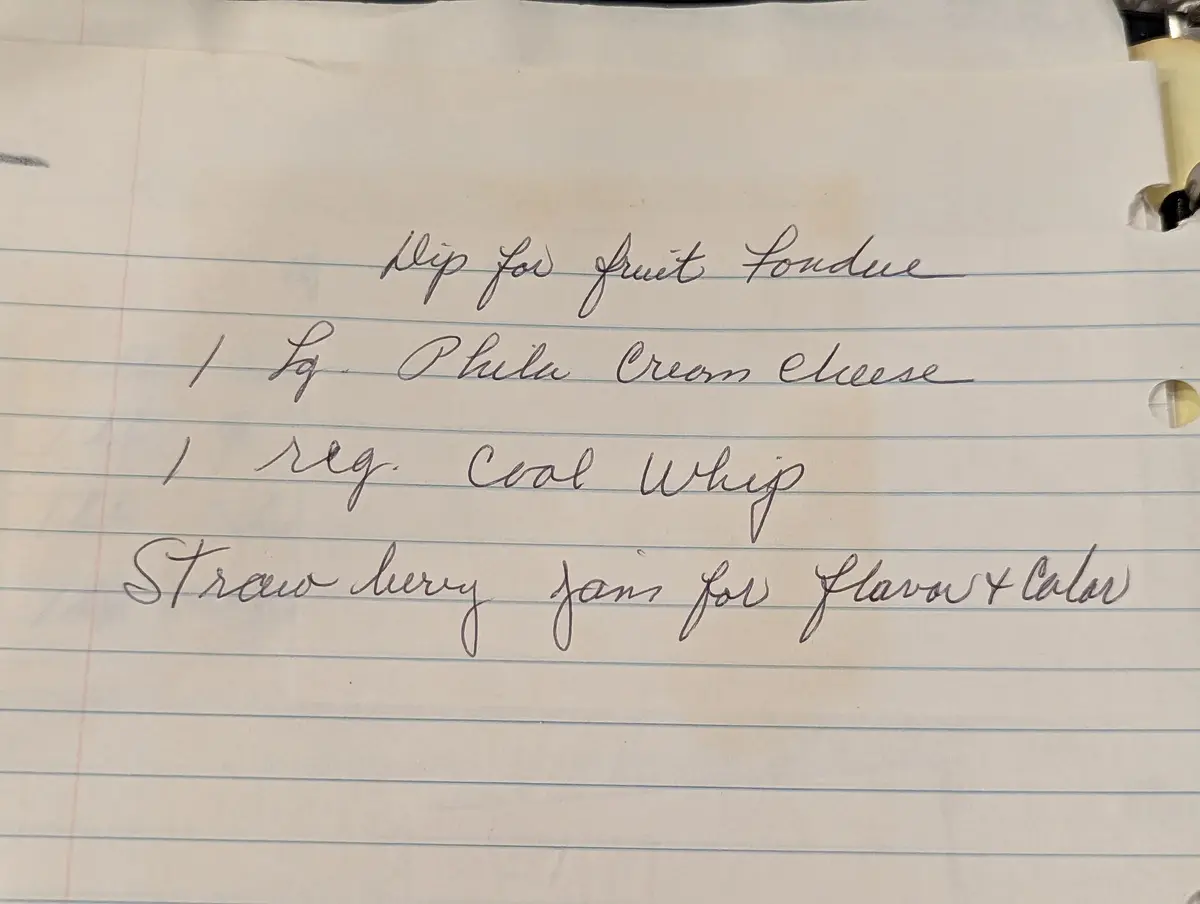 Dip for fruit Fondue
1 Lg. Phila Cream Cheese
1 reg. Cool Whip
Strawberry jam for flavor & Color